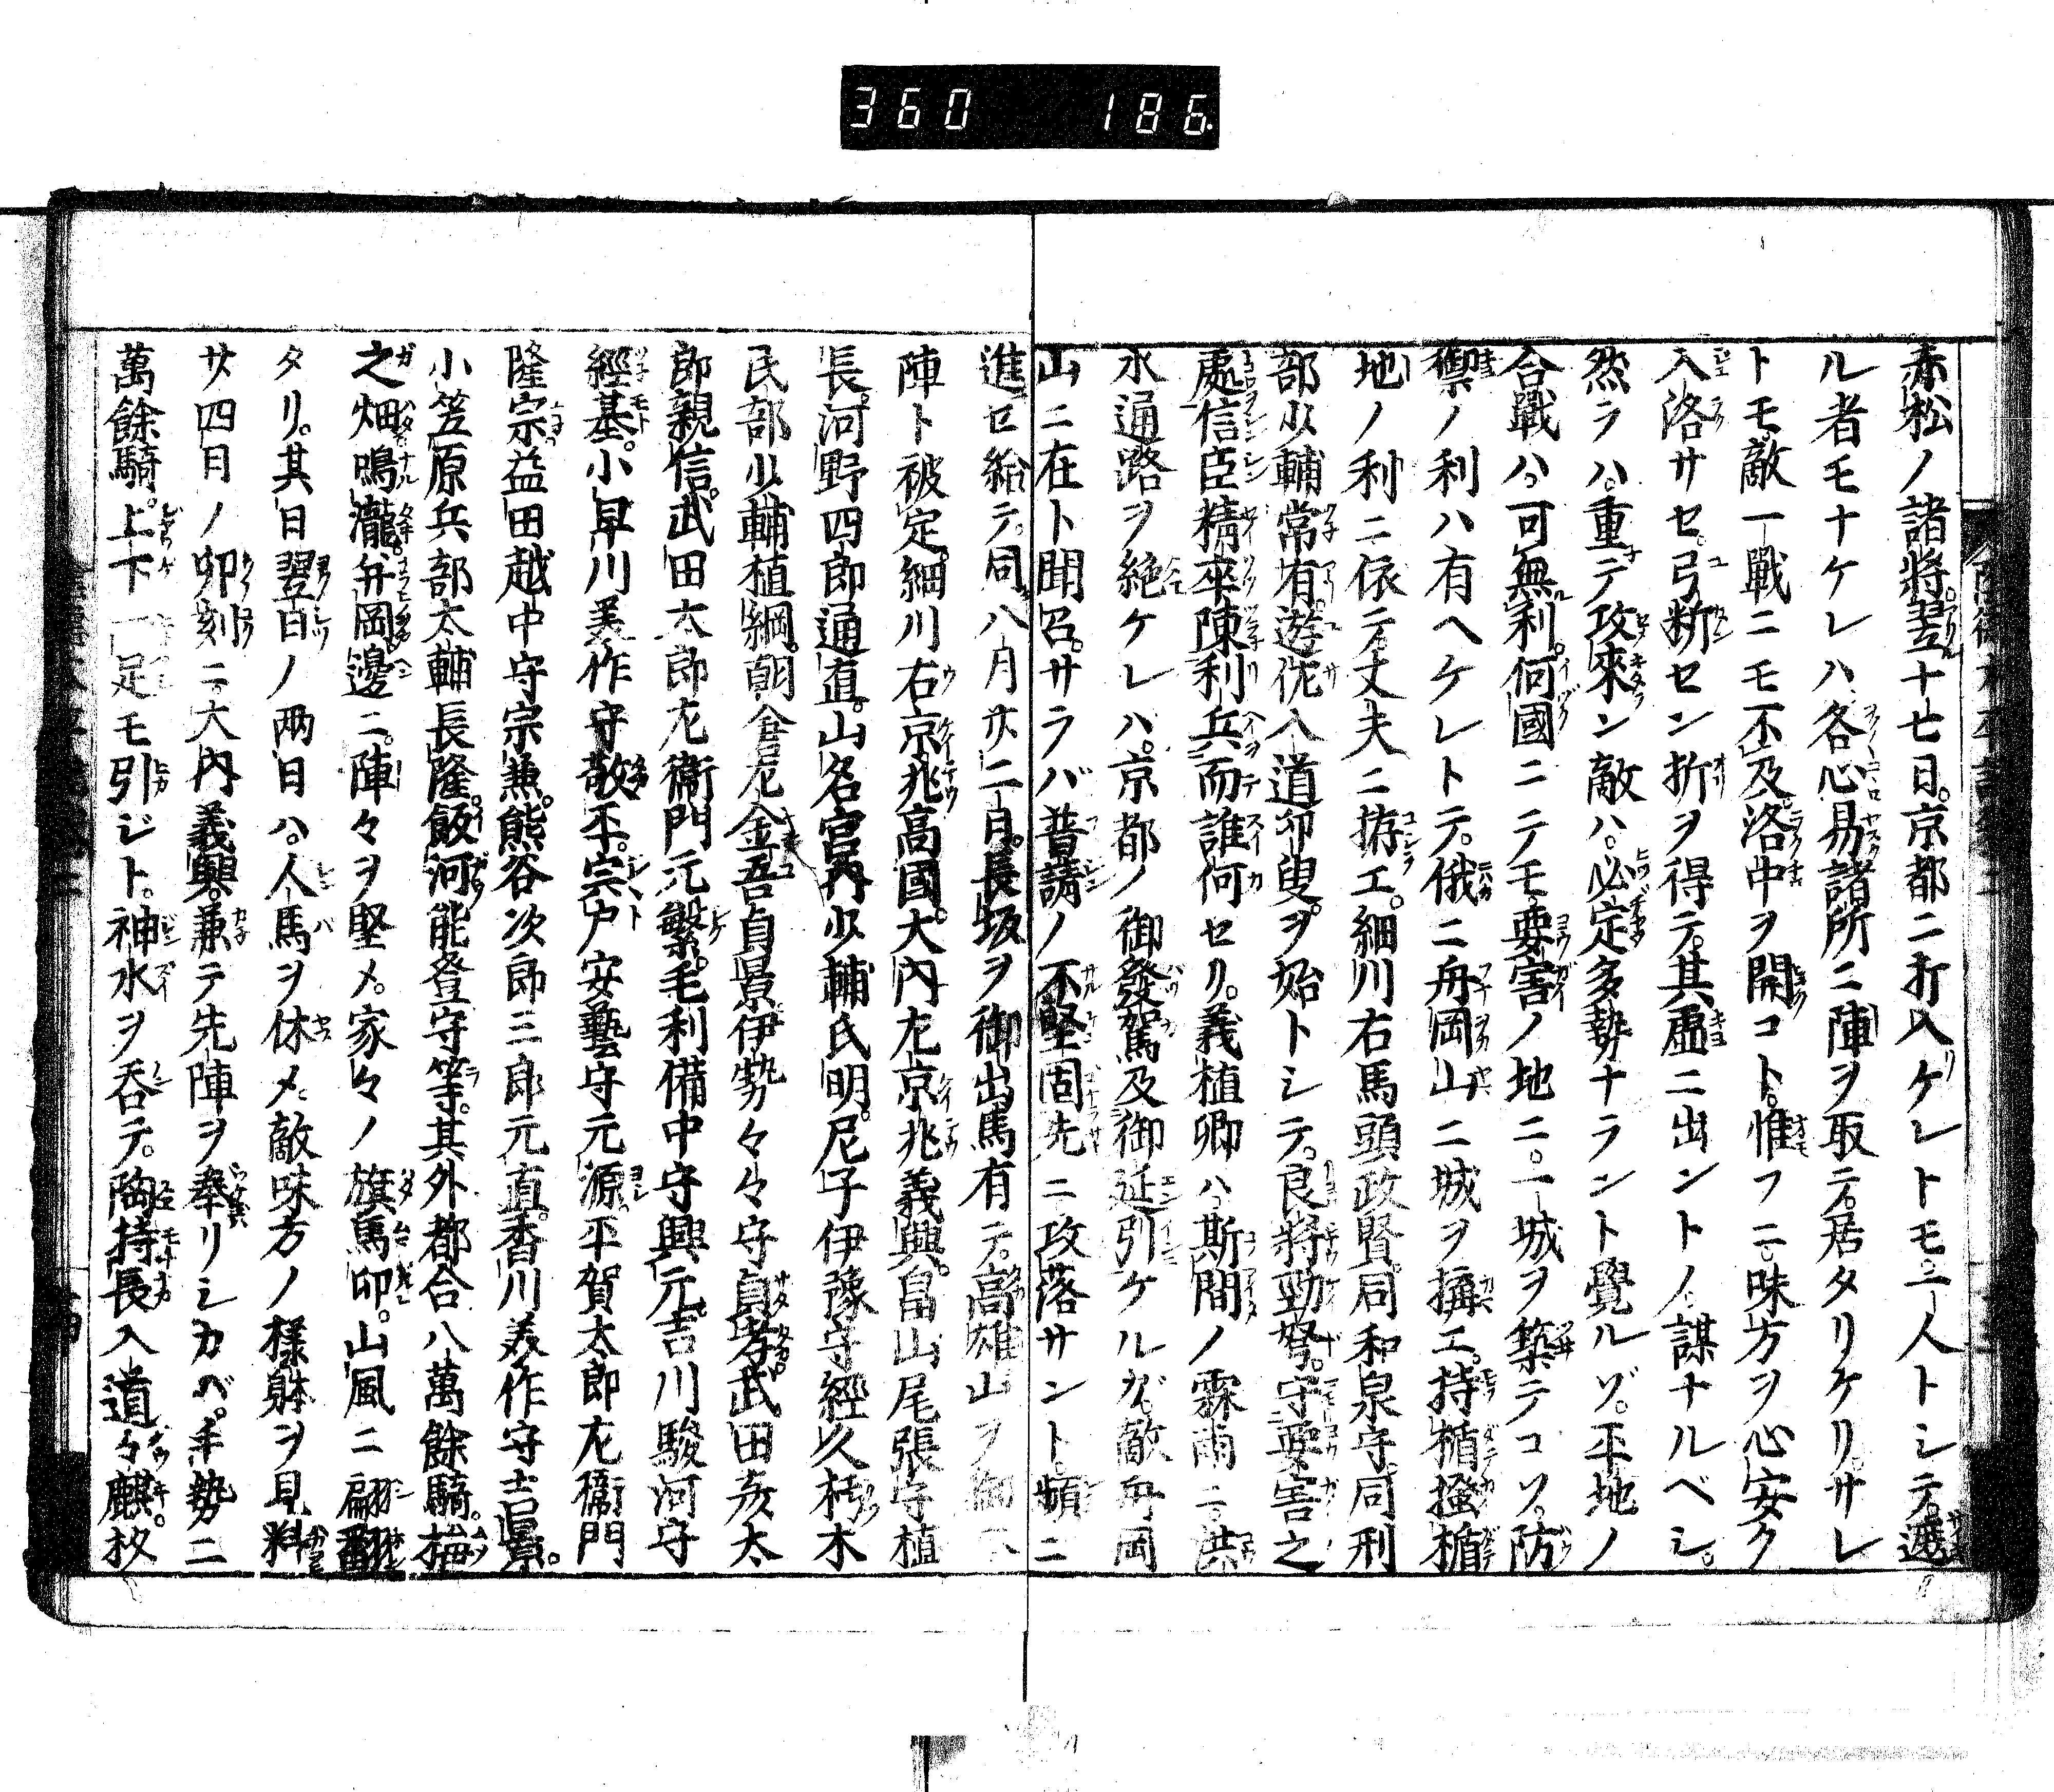 360 186
赤松ノ諸將。翌十七日。京都ニ打入ケレトモ。一人トシテ。遮
ル者モナケレハ。各心易諸所ニ陣ヲ取テ。居タリケリ。サレ
トモ。敵一戰ニモ不及。洛中ヲ開コト。惟フニ。味方ヲ心安ク
入洛サセ。弓断セン折ヲ得テ。其虚ニ出ントノ。謀ナルベシ。
然ラハ。重テ攻來ン敵ハ。必定多勢ナラント覺ルゾ。平地ノ
合戰ハ。可無利。何國ニテモ。要害ノ地ニ。一城ヲ築テコソ。防
禦ノ利ハ有ヘケレトテ。俄ニ舟岡山ニ城ヲ搆エ。持楯掻楯
地ノ利ニ依テ。丈夫ニ拵エ。細川右馬頭政賢。同和泉守。同刑
部少輔常有。遊佐入道印叟。ヲ始トシテ。良將勁弩。守要害之
處。信臣精卒陳利兵而誰何セリ。義植卿ハ。斯間ノ霖雨ニ。洪
水通路ヲ絶ケレハ。京都ノ御發駕及御延引ケルガ。敵舟岡
山ニ在ト聞召。サラバ普請ノ不堅固先ニ攻落サント。頻ニ
進セ給テ。同八月廿二日。長坂ヲ御出馬有テ。高雄山ヲ御
陣ト被定。細川右京兆高國。大内左京兆義興。畠山尾張守植
長。河野四郎通直。山名宮内少輔氏明。尼子伊豫守經久。朽木
民部少輔植綱。朝倉左金吾貞景。伊勢々々守貞孝。武田彦太
郎親信。武田太郎左衞門元繁。毛利備中守興元。吉川駿河守
經基。小早川美作守敬平。宗戸安藝守元源。平賀太郎左衞門
隆宗。益田越中守宗兼。熊谷次郎三郎元直。香川美作守吉景。
小笠原兵部太輔長隆。飯河能登守等。其外都合八萬餘騎。梅
之畑鳴瀧。并岡邊ニ。陣々ヲ堅メ。家々ノ旗馬印。山風ニ翩翻
タリ。其日翌日ノ両日ハ。人馬ヲ休メ。敵味方ノ樣躰ヲ見料
廿四日ノ卯刻ニ。大内義興。兼テ先陣ヲ奉リシカバ。手勢ニ
萬餘騎。上下一足モ引ジト。神水ヲ呑テ。陶持長入道々麒。杉